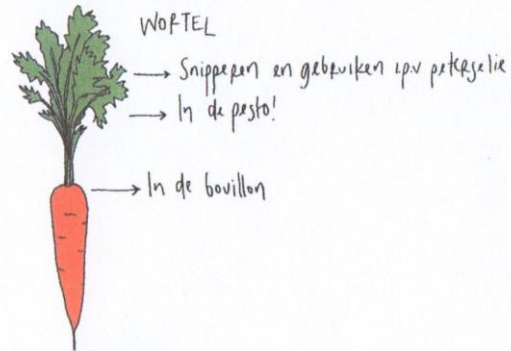 WORTEL
Snipperen en gebruiken ipv peterselie
In de pesto!
In de bouillon